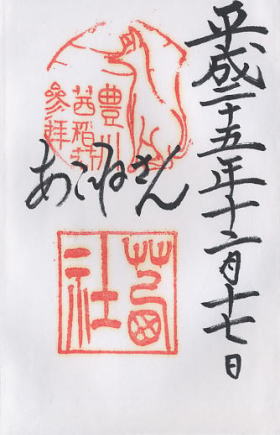 平成二十五年十二月十七日
豊川
茜稲荷
參拝
あこねさん
茜社